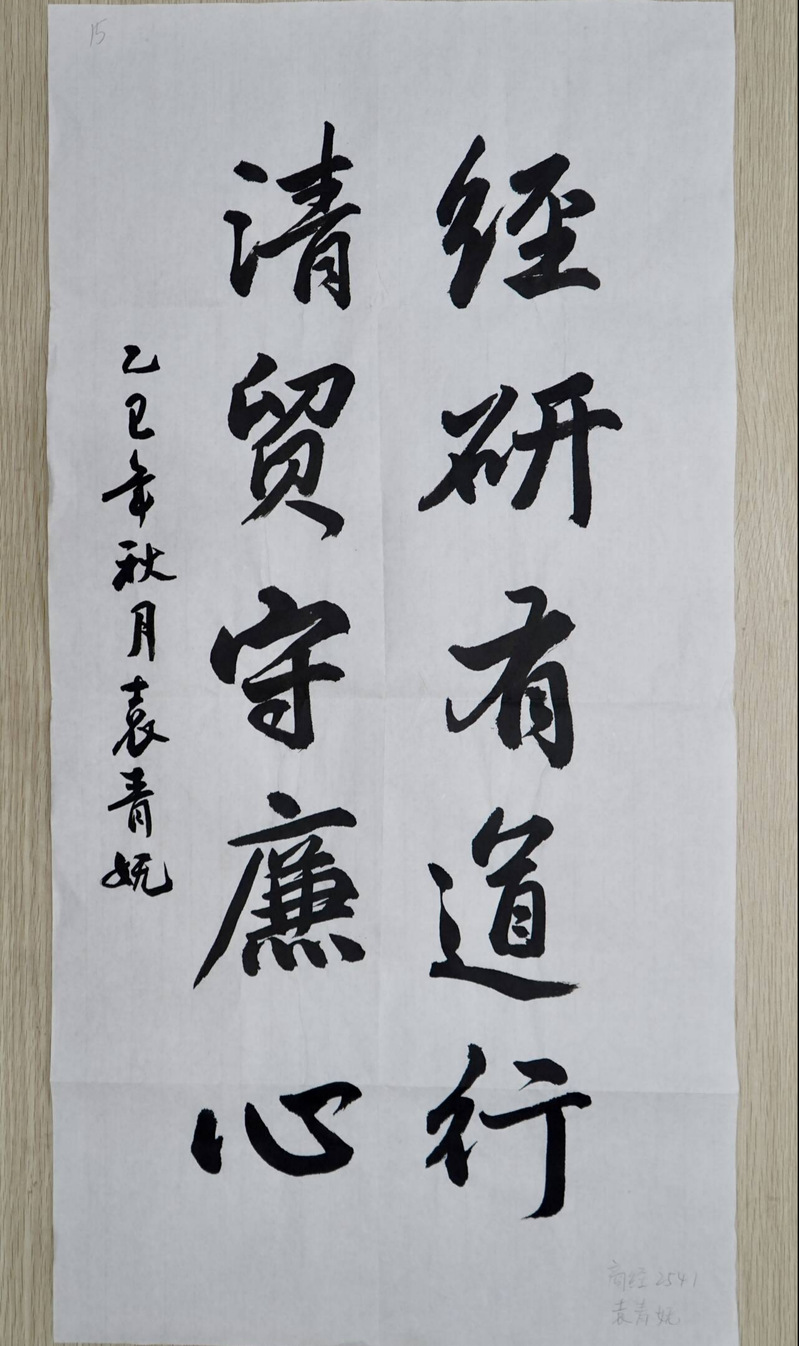 15
經研有道行
清貿守廉心
乙巳年秋月袁青妧
商经2541
袁青妧